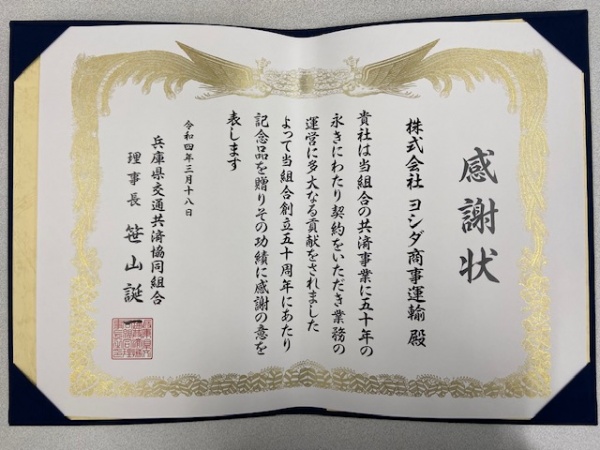 感謝状
株式会社 ヨシダ商事運輸 殿
貴社は当組合の共済事業に五十年の
永きにわたり契約をいただき業務の
運営に多大なる貢献をされました
よって当組合創立五十周年にあたり
記念品を贈りその功績に感謝の意を
表します
令和四年三月十八日
兵庫県交通共済協同組合
理事長 笹山誕一